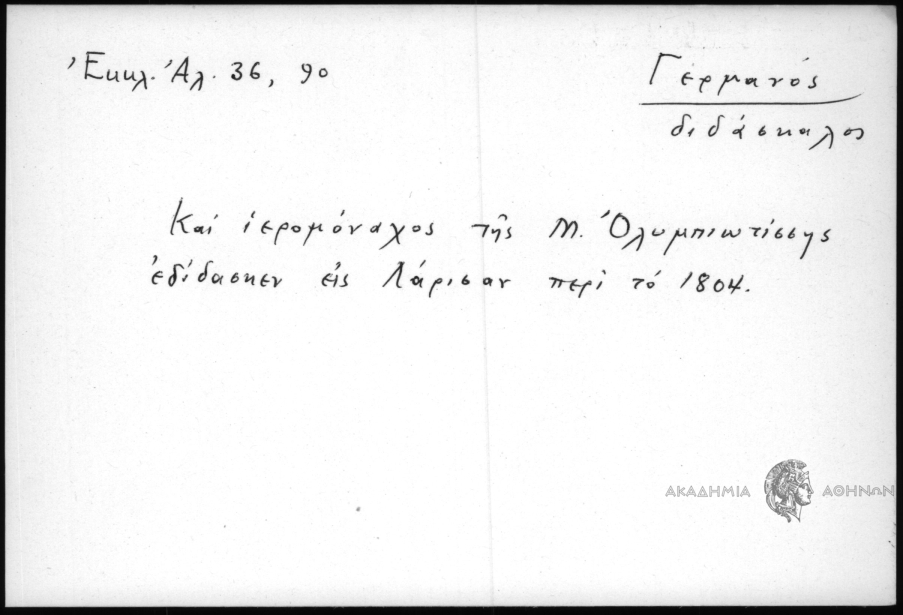 Ἐκκλ. Ἀλ. 36, 90
Γερμανός
διδάσκαλος
Καί ἱερομόναχος τῆς Μ. Ὀλυμπιωτίσσης
ἐδίδασκεν εἰς Λάρισαν περί τό 1804.
ΑΚΑΔΗΜΙΑ ΑΘΗΝΩΝ